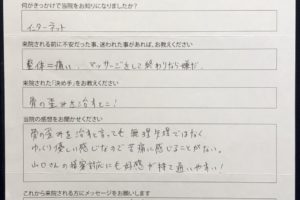 何がきっかけで当院をお知りになりましたか?
インターネット
来院される前に不安だった事、迷われた事があれば、お教えください
整体=痛い、マッサージをして終わりなら嫌だ。
来院された「決め手」をお教えください
骨の歪みを治すとこ!
当院の感想をお聞かせください
骨の歪みを治すと言っても無理矢理ではなく
ゆっくり優しい感じなので苦痛に感じることがない。
山口さんの接客対応にも好感が持て通いやすい!
これから来院される方にメッセージをお願いします